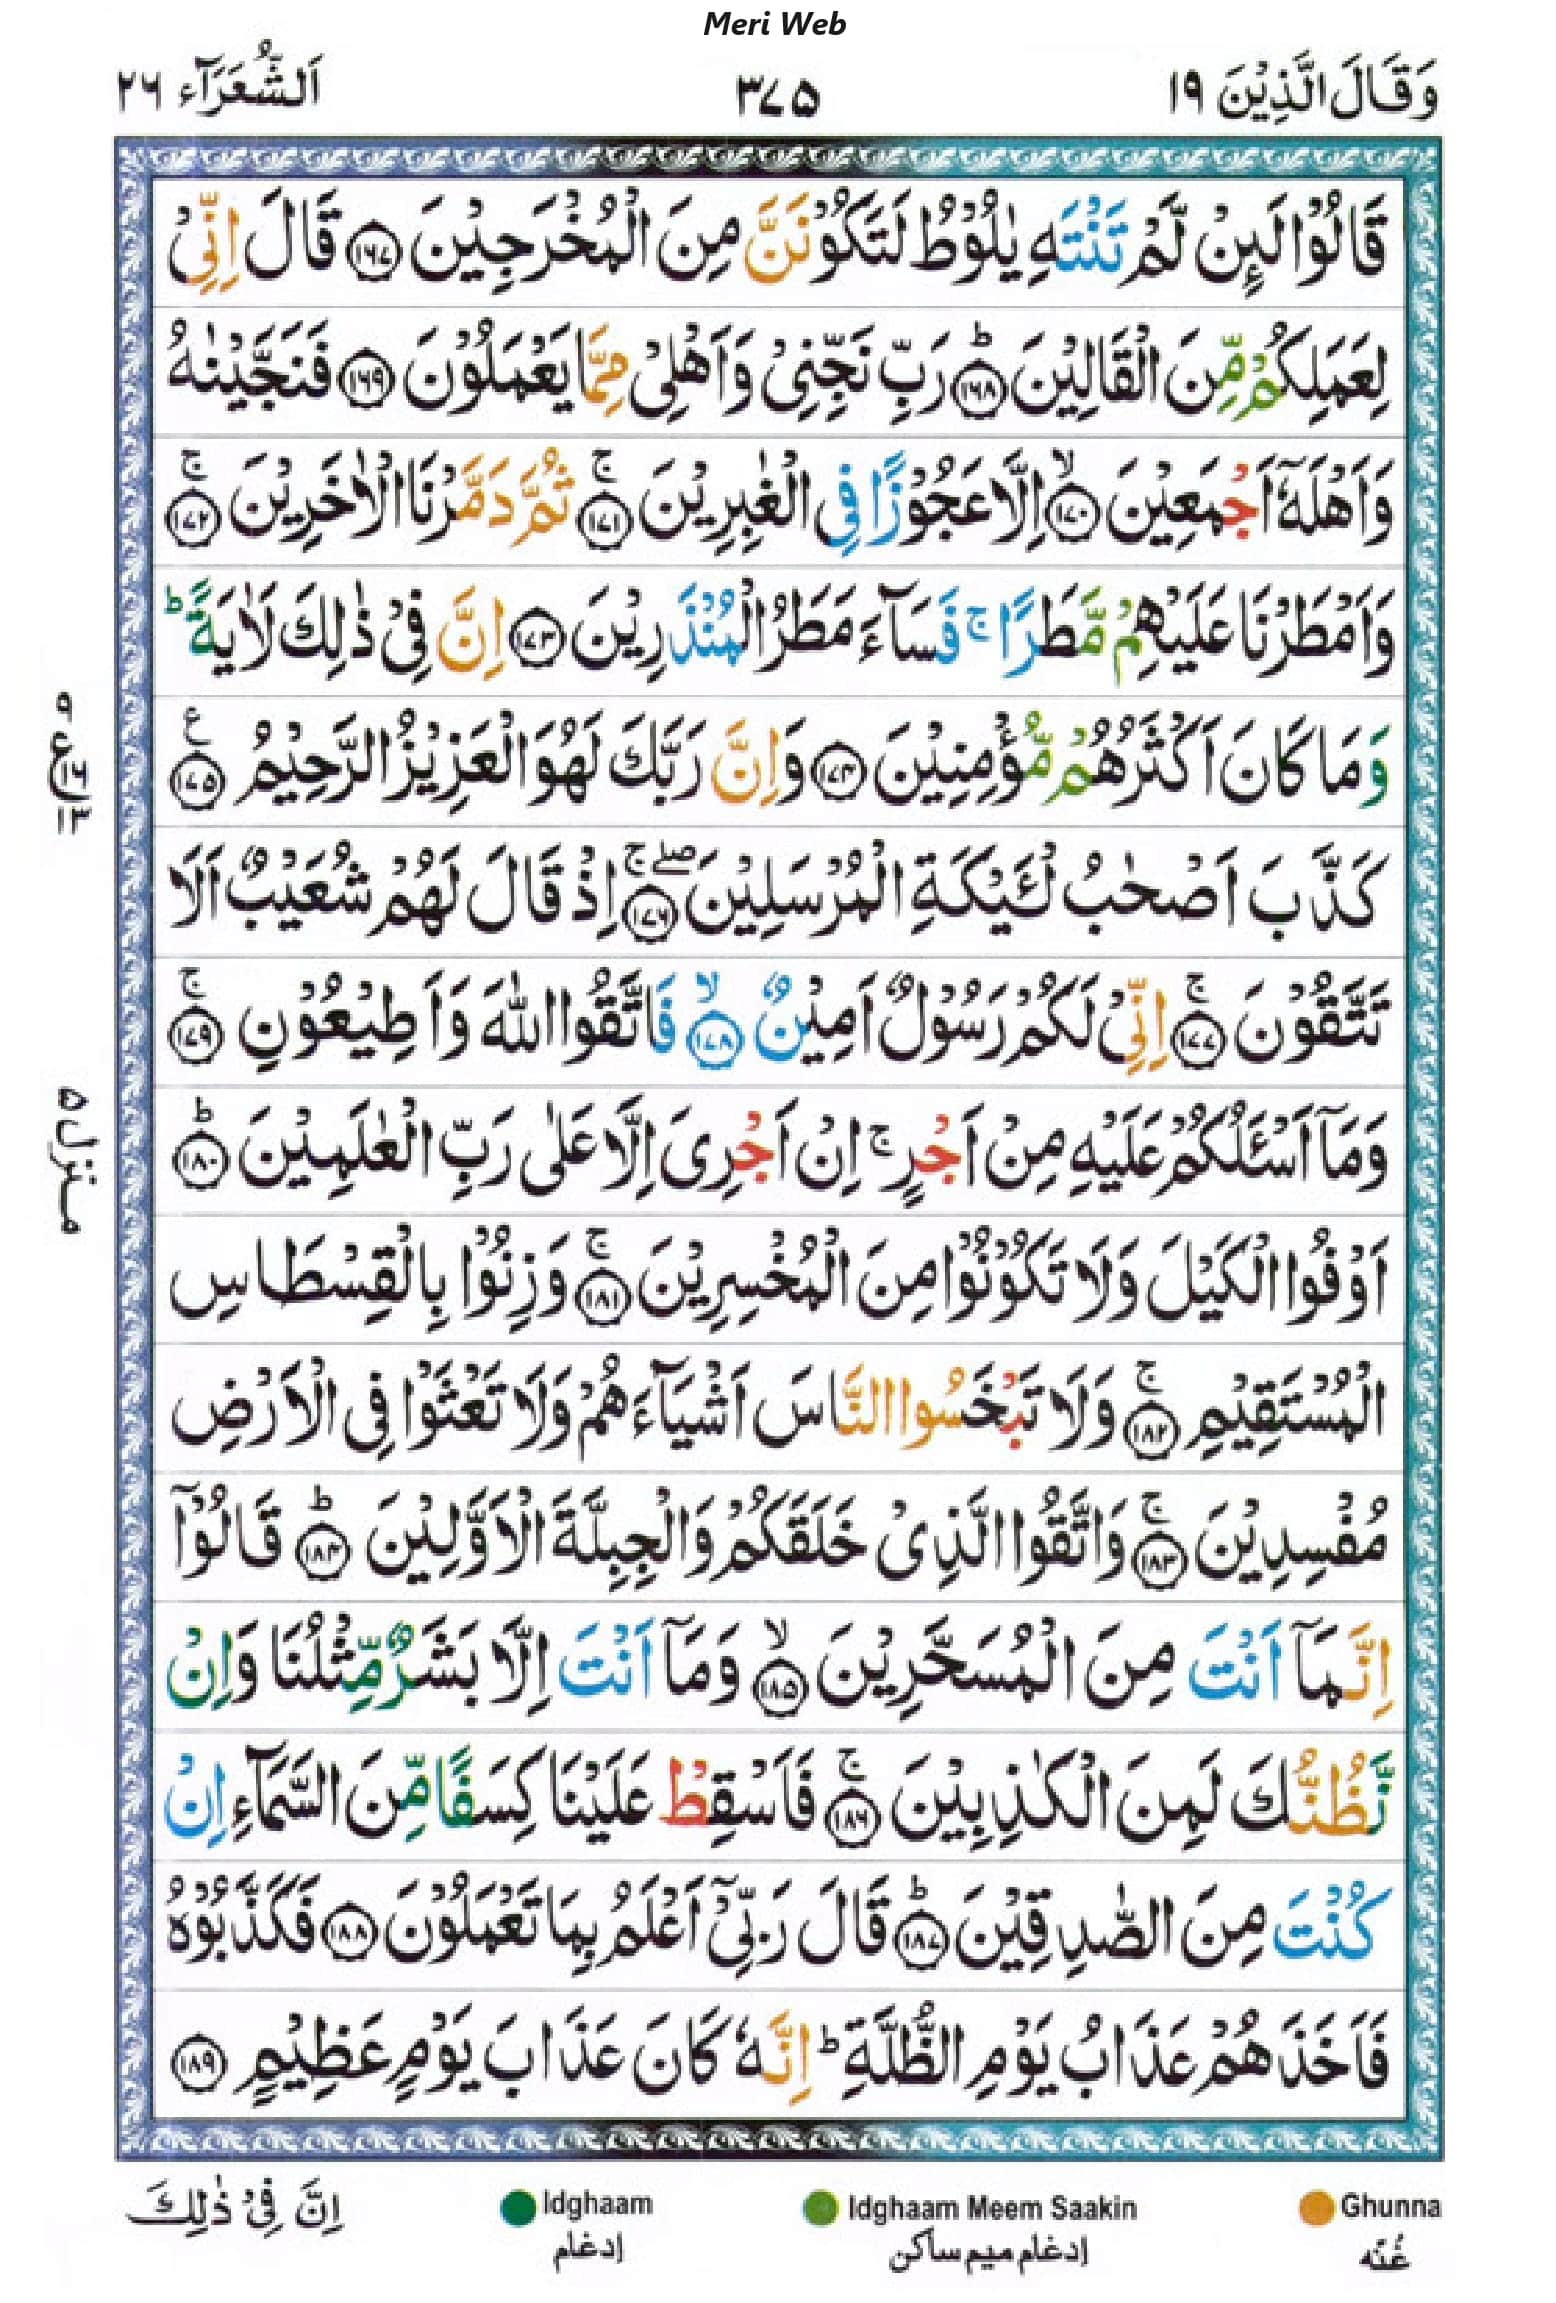 Meri Web
وَقَالَ الَّذِيْنَ ١٩
٣٧٥
اَلشُّعَرَآء ٢٦
قَالُوْا لَىِٕنْ لَّمْ تَنْتَهِ يٰلُوْطُ لَتَكُوْنَنَّ مِنَ الْمُخْرَجِيْنَ ﴿١٦٧﴾ قَالَ اِنِّىْ
لِعَمَلِكُمْ مِّنَ الْقَالِيْنَ ؕ﴿١٦٨﴾ رَبِّ نَجِّنِىْ وَاَهْلِىْ مِمَّا يَعْمَلُوْنَ ﴿١٦٩﴾ فَنَجَّيْنٰهُ
وَاَهْلَهٗۤ اَجْمَعِيْنَ ۙ﴿١٧٠﴾ اِلَّا عَجُوْزًا فِى الْغٰبِرِيْنَ ۚ﴿١٧١﴾ ثُمَّ دَمَّرْنَا الْاٰخَرِيْنَ ۚ﴿١٧٢﴾
وَاَمْطَرْنَا عَلَيْهِمْ مَّطَرًا ۚ فَسَآءَ مَطَرُ الْمُنْذَرِيْنَ ﴿١٧٣﴾ اِنَّ فِىْ ذٰلِكَ لَاٰيَةً ؕ
وَمَا كَانَ اَكْثَرُهُمْ مُّؤْمِنِيْنَ ﴿١٧٤﴾ وَاِنَّ رَبَّكَ لَهُوَ الْعَزِيْزُ الرَّحِيْمُ ﴿١٧٥﴾ ع
٩
ع ١٦
١٣
كَذَّبَ اَصْحٰبُ لْئَيْكَةِ الْمُرْسَلِيْنَ ۖۚ﴿١٧٦﴾ اِذْ قَالَ لَهُمْ شُعَيْبٌ اَلَا
تَتَّقُوْنَ ۚ﴿١٧٧﴾ اِنِّىْ لَكُمْ رَسُوْلٌ اَمِيْنٌ ۙ﴿١٧٨﴾ فَاتَّقُوا اللّٰهَ وَاَطِيْعُوْنِ ۚ﴿١٧٩﴾
وَمَاۤ اَسْئَلُكُمْ عَلَيْهِ مِنْ اَجْرٍ ۚ اِنْ اَجْرِىَ اِلَّا عَلٰى رَبِّ الْعٰلَمِيْنَ ؕ﴿١٨٠﴾
منزل ٥
اَوْفُوا الْكَيْلَ وَلَا تَكُوْنُوْا مِنَ الْمُخْسِرِيْنَ ۚ﴿١٨١﴾ وَزِنُوْا بِالْقِسْطَاسِ
الْمُسْتَقِيْمِ ۚ﴿١٨٢﴾ وَلَا تَبْخَسُوا النَّاسَ اَشْيَآءَهُمْ وَلَا تَعْثَوْا فِى الْاَرْضِ
مُفْسِدِيْنَ ۚ﴿١٨٣﴾ وَاتَّقُوا الَّذِىْ خَلَقَكُمْ وَالْجِبِلَّةَ الْاَوَّلِيْنَ ؕ﴿١٨٤﴾ قَالُوْۤا
اِنَّمَاۤ اَنْتَ مِنَ الْمُسَحَّرِيْنَ ۙ﴿١٨٥﴾ وَمَاۤ اَنْتَ اِلَّا بَشَرٌ مِّثْلُنَا وَاِنْ
نَّظُنُّكَ لَمِنَ الْكٰذِبِيْنَ ۚ﴿١٨٦﴾ فَاَسْقِطْ عَلَيْنَا كِسَفًا مِّنَ السَّمَآءِ اِنْ
كُنْتَ مِنَ الصّٰدِقِيْنَ ؕ﴿١٨٧﴾ قَالَ رَبِّىْۤ اَعْلَمُ بِمَا تَعْمَلُوْنَ ﴿١٨٨﴾ فَكَذَّبُوْهُ
فَاَخَذَهُمْ عَذَابُ يَوْمِ الظُّلَّةِ ؕ اِنَّهٗ كَانَ عَذَابَ يَوْمٍ عَظِيْمٍ ﴿١٨٩﴾
Ghunna
غُنّه
Idghaam Meem Saakin
إدغام ميم ساكن
Idghaam
إدغام
اِنَّ فِىْ ذٰلِكَ